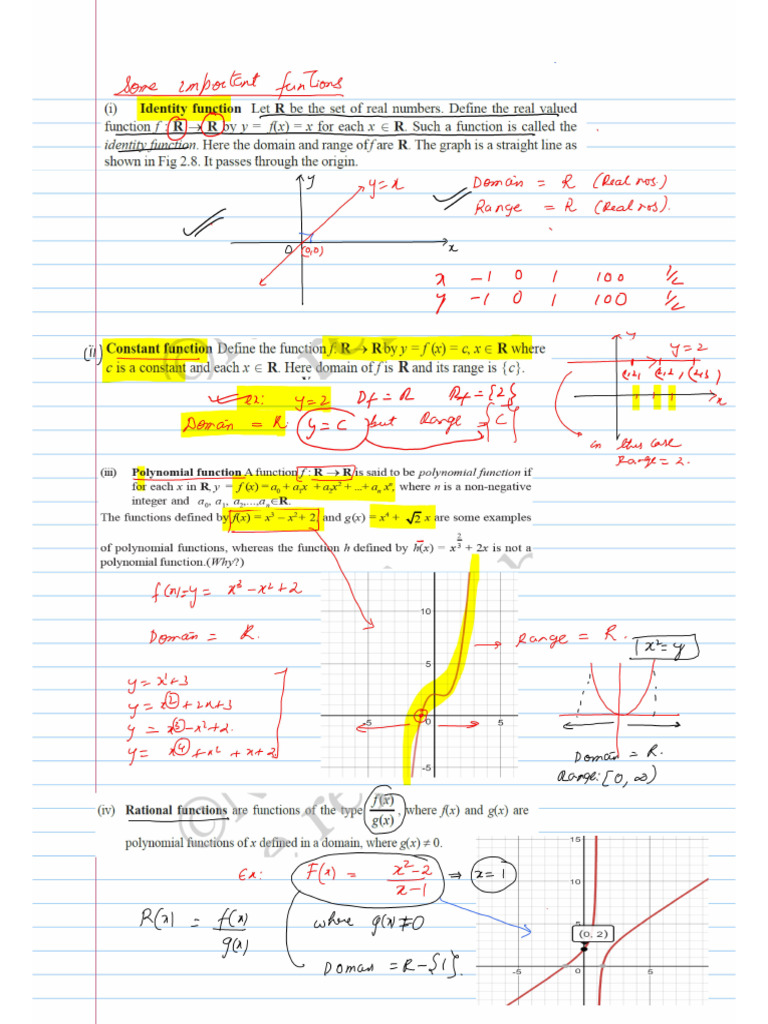 Some important functions
(i) Identity function Let R be the set of real numbers. Define the real valued
function f : R → R by y = f(x) = x for each x ∈ R. Such a function is called the
identity function. Here the domain and range of f are R. The graph is a straight line as
shown in Fig 2.8. It passes through the origin.
y
y=x
Domain = R (Real nos.)
Range = R (Real nos).
0 (0,0)
x
x -1 0 1 100 1/2
y -1 0 1 100 1/2
(ii) Constant function Define the function f: R → R by y = f (x) = c, x ∈ R where
c is a constant and each x ∈ R. Here domain of f is R and its range is {c}.
y
y=2
x
y=2 Df = R Rf = {2}
Domain = R: y=c but Range = {c}
in this case
Range = 2.
(iii) Polynomial function A function f : R → R is said to be polynomial function if
for each x in R, y = f (x) = a₀ + a₁x + a₂x² + ...+ aₙ xⁿ, where n is a non-negative
integer and a₀, a₁, a₂,...,aₙ∈R.
The functions defined by f(x) = x³ – x² + 2, and g(x) = x⁴ + √2 x are some examples
of polynomial functions, whereas the function h defined by h(x) = x^(2/3) + 2x is not a
polynomial function.(Why?)
f(x)=y = x³-x²+2
Domain = R.
10
5
-5 0 5
-5
Range = R.
x²=y
y = x¹+3
y = x²+2x+3
y = x³-x²+2.
y = x⁴+x²+x+2
Domain = R.
Range: [0, ∞)
(iv) Rational functions are functions of the type f(x)/g(x), where f(x) and g(x) are
polynomial functions of x defined in a domain, where g(x) ≠ 0.
Ex: F(x) = x²-2/x-1 ⇒ x=1
R(x) = f(x)/g(x) where g(x)≠0
Domain = R-{1}.
15
10
5
(0, 2)
-5 0 5